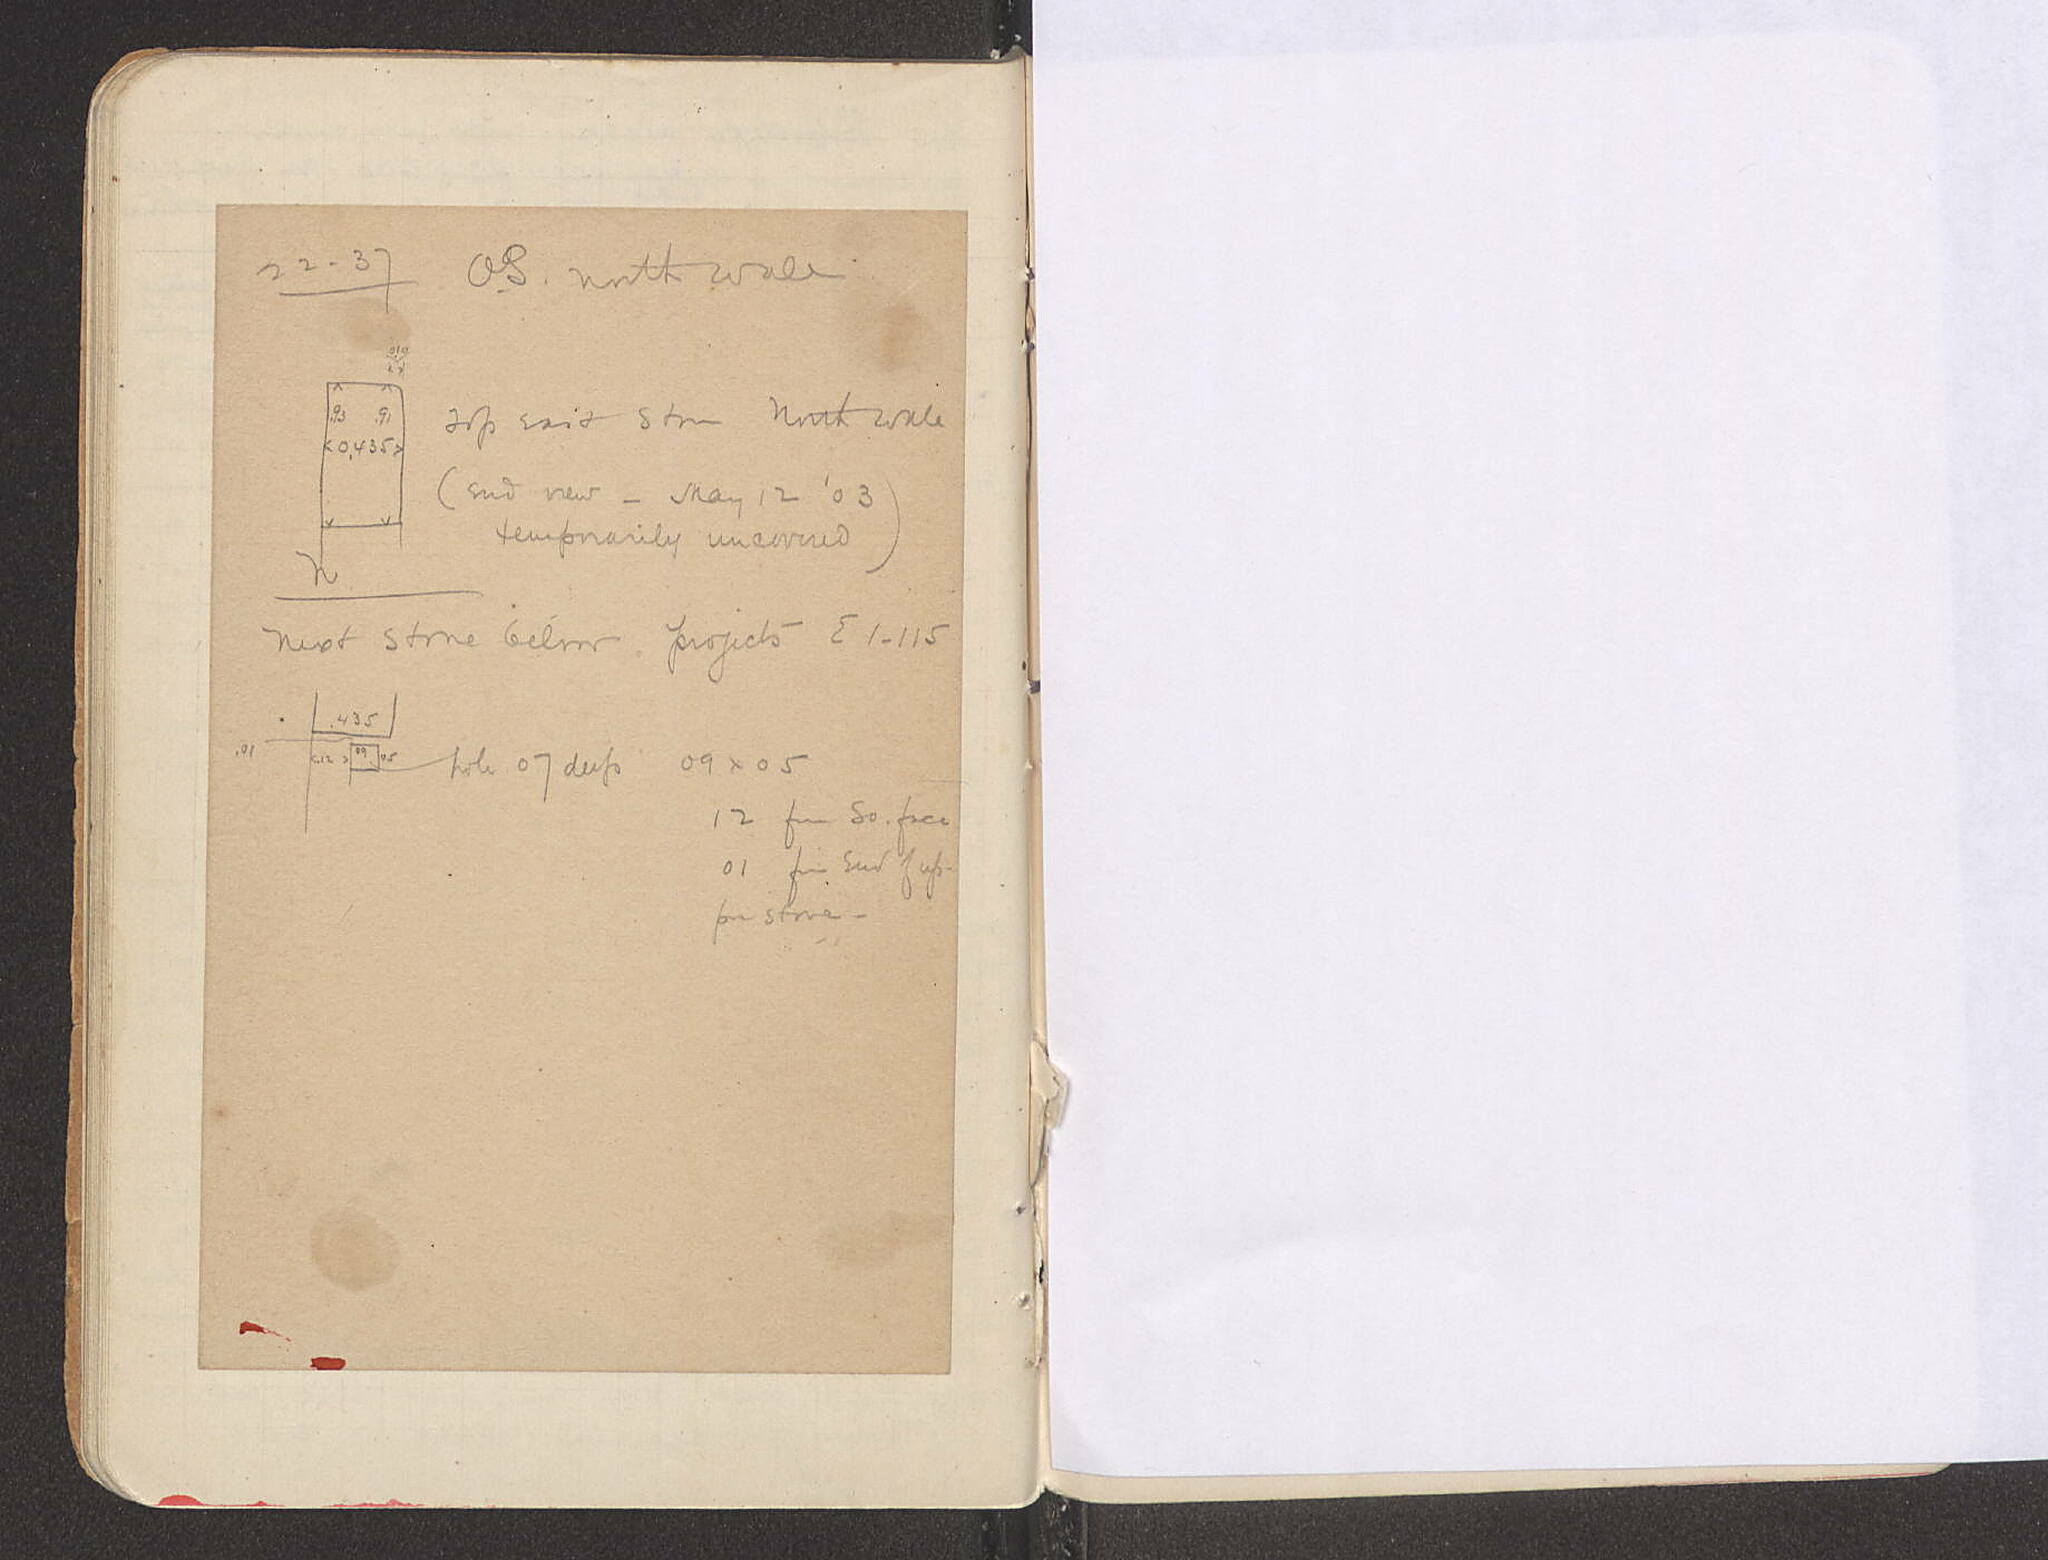 22-37 OS. north wall
.010
.93 .91
0,435
top east stone North wall
(End view - May 12 '03
temporarily uncovered)
n
Next stone below projects E 1-115
.435
.01
.12 09 .05 hole 07 deep 09 x 05
12 fm So. face
01 fm End of up-
per stone -